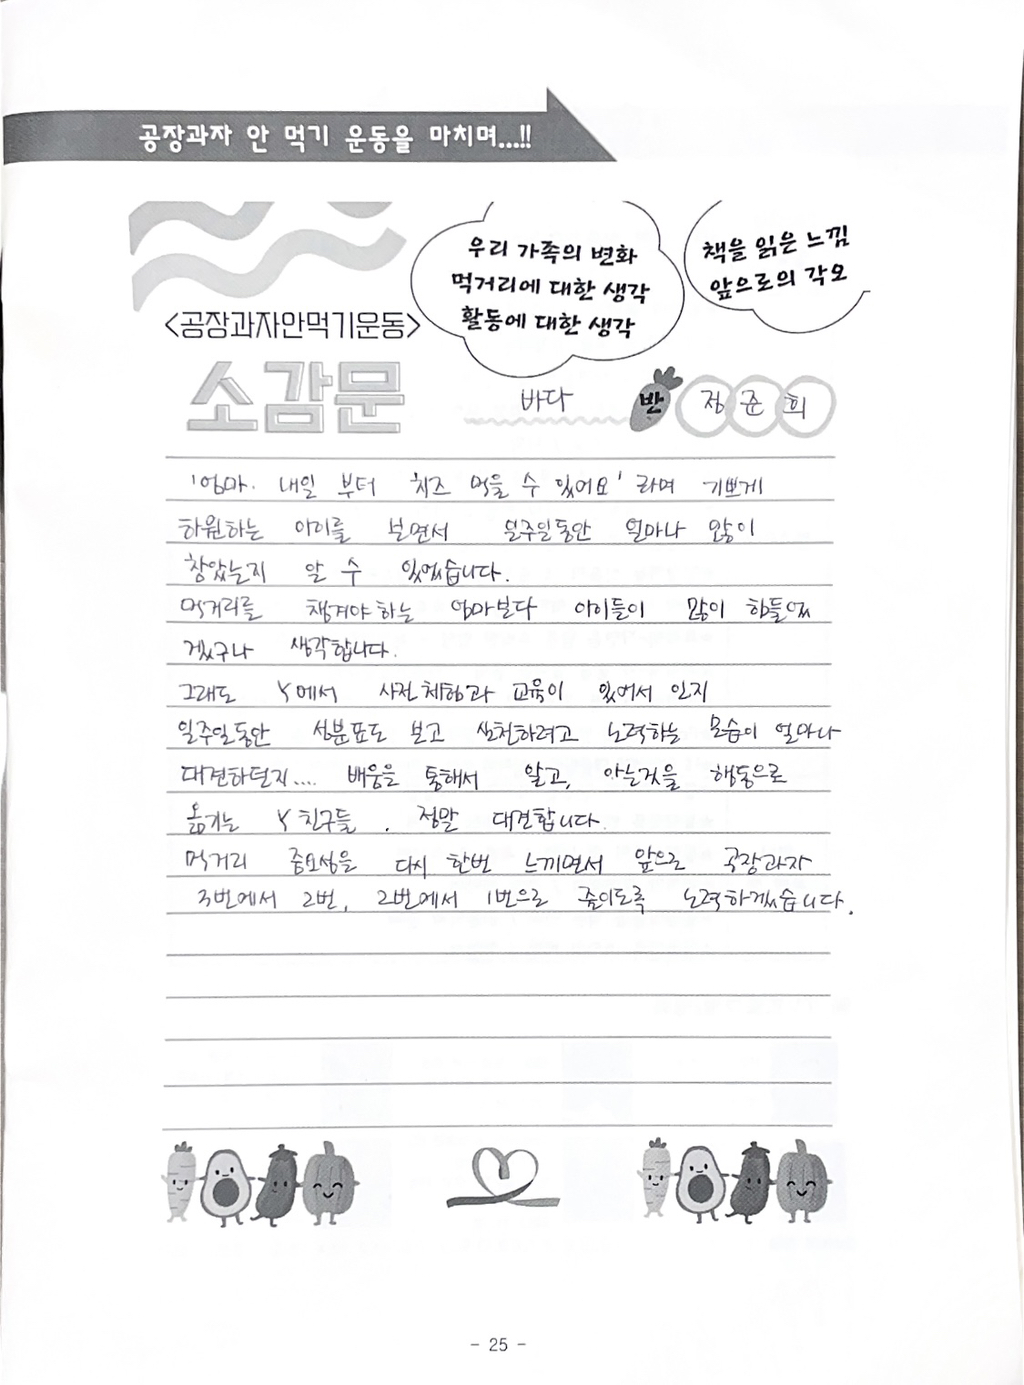 공장과자 안 먹기 운동을 마치며...!!
우리 가족의 변화
먹거리에 대한 생각
활동에 대한 생각
책을 읽은 느낌
앞으로의 각오
<공장과자안먹기운동>
소감문
바다 반 정준희
'엄마. 내일 부터 치즈 먹을 수 있어요' 라며 기쁘게
하원하는 아이를 보면서 일주일동안 얼마나 많이
참았는지 알 수 있었습니다.
먹거리를 챙겨야 하는 엄마보다 아이들이 많이 힘들었
겠구나 생각합니다.
그래도 Y에서 사전체험과 교육이 있어서 인지
일주일동안 성분표도 보고 실천하려고 노력하는 모습이 얼마나
대견하던지.... 배움을 통해서 알고, 아는것을 행동으로
옮기는 Y친구들. 정말 대견합니다.
먹거리 중요성을 다시 한번 느끼면서 앞으로 공장과자
3번에서 2번, 2번에서 1번으로 줄이도록 노력하겠습니다.
- 25 -